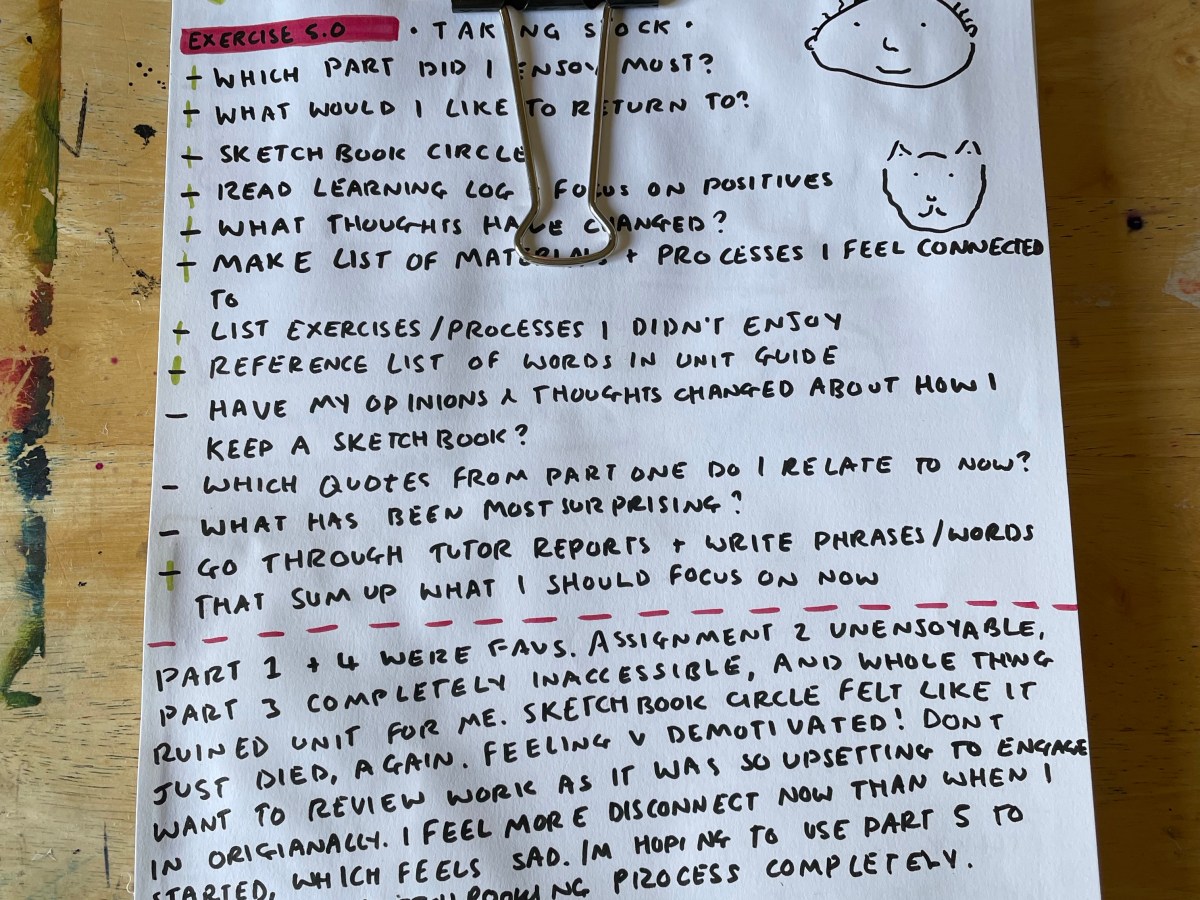 EXERCISE 5.0 • TAKING STOCK •
+ WHICH PART DID I ENJOY MOST?
+ WHAT WOULD I LIKE TO RETURN TO?
+ SKETCHBOOK CIRCLE
+ READ LEARNING LOG FOCUS ON POSITIVES
+ WHAT THOUGHTS HAVE CHANGED?
+ MAKE LIST OF MATERIALS + PROCESSES I FEEL CONNECTED
TO
+ LIST EXERCISES/PROCESSES I DIDN'T ENJOY
+ REFERENCE LIST OF WORDS IN UNIT GUIDE
- HAVE MY OPINIONS & THOUGHTS CHANGED ABOUT HOW I
KEEP A SKETCHBOOK?
- WHICH QUOTES FROM PART ONE DO I RELATE TO NOW?
- WHAT HAS BEEN MOST SURPRISING?
+ GO THROUGH TUTOR REPORTS + WRITE PHRASES/WORDS
THAT SUM UP WHAT I SHOULD FOCUS ON NOW
PART 1 + 4 WERE FAVS. ASSIGNMENT 2 UNENJOYABLE,
PART 3 COMPLETELY INACCESSIBLE, AND WHOLE THING
RUINED UNIT FOR ME. SKETCHBOOK CIRCLE FELT LIKE IT
JUST DIED, AGAIN. FEELING V DEMOTIVATED! DONT
WANT TO REVIEW WORK AS IT WAS SO UPSETTING TO ENGAGE
IN ORIGIANALLY. I FEEL MORE DISCONNECT NOW THAN WHEN I
STARTED, WHICH FEELS SAD. I'M HOPING TO USE PART 5 TO
PROCESS COMPLETELY.